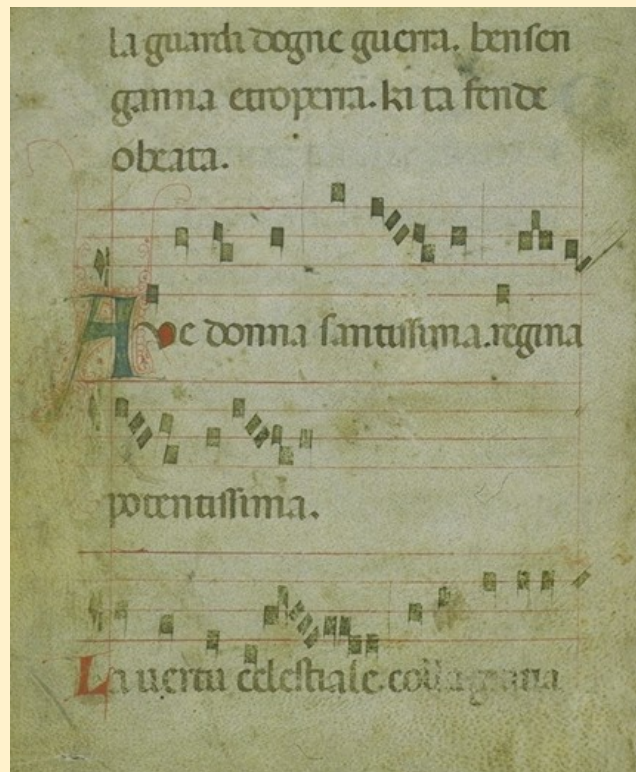 la guarda dogne guerra. ben sen
ganna etroperra. ki ta fende
obeata.
Ave donna santissima. regina
potentissima.
La uertu celestiale colla grana